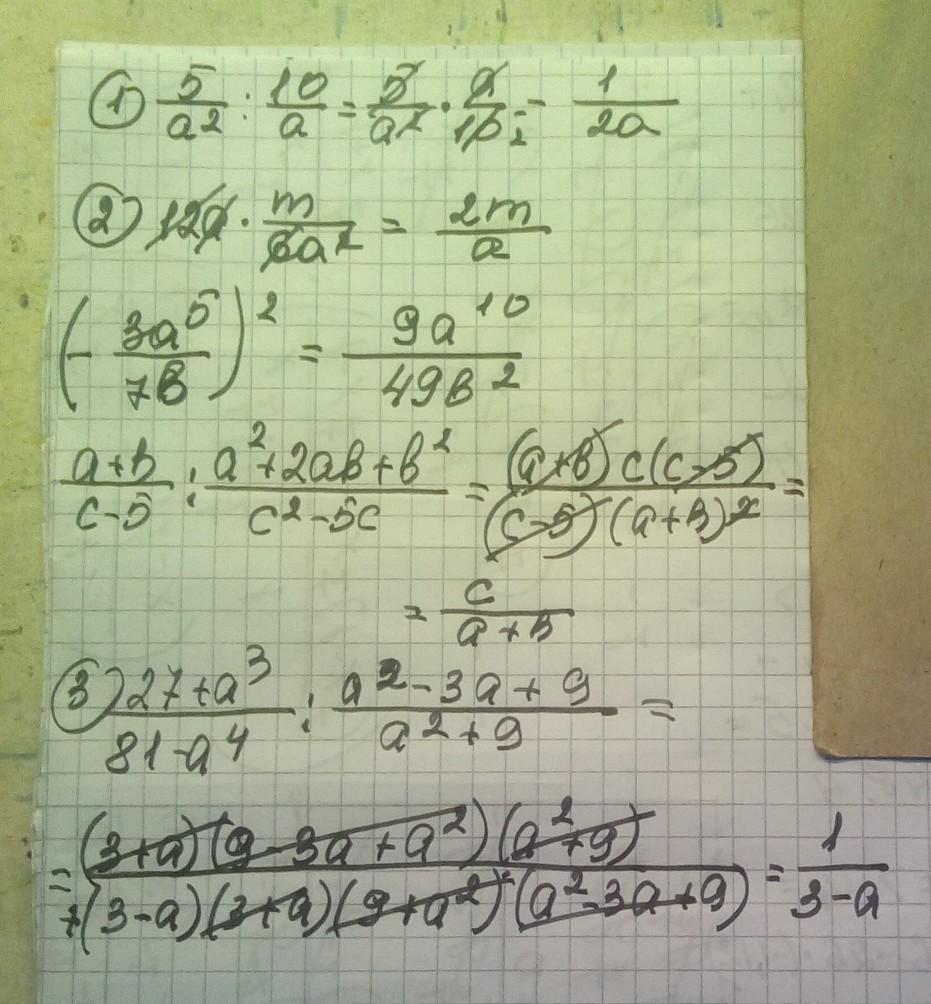 ① 5/a² : 10/a = 5/a² · a/10 ₂ = 1/2a
② 12a · m/6a² = 2m/a
(- 3a⁵/7в)² = 9a¹⁰/49в²
a+в/c-5 : a²+2aв+в²/c²-5c = (a+в)c(c-5)/(c-5)(a+в)² =
= c/a+в
③ 27+a³/81-a⁴ : a²-3a+9/a²+9 =
= (3+a)(9-3a+a²)(a²+9)/(3-a)(3+a)(9+a²)(a²-3a+9) = 1/3-a